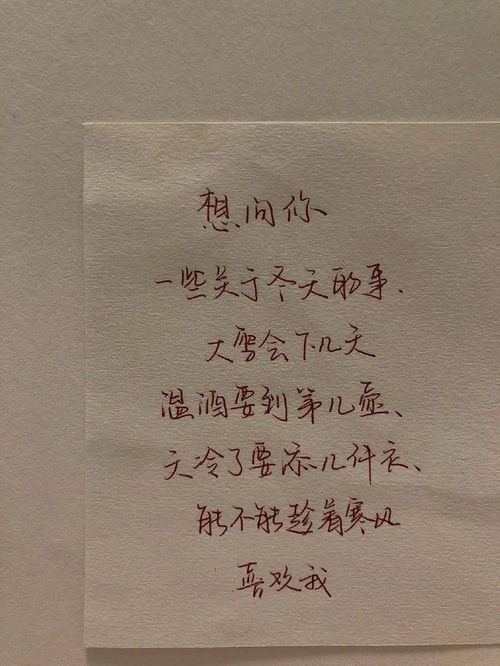 想问你
一些关于冬天的事、
大雪会下几天
温酒要到第几壶、
天冷了要添几件衣、
能不能趁着寒风
喜欢我